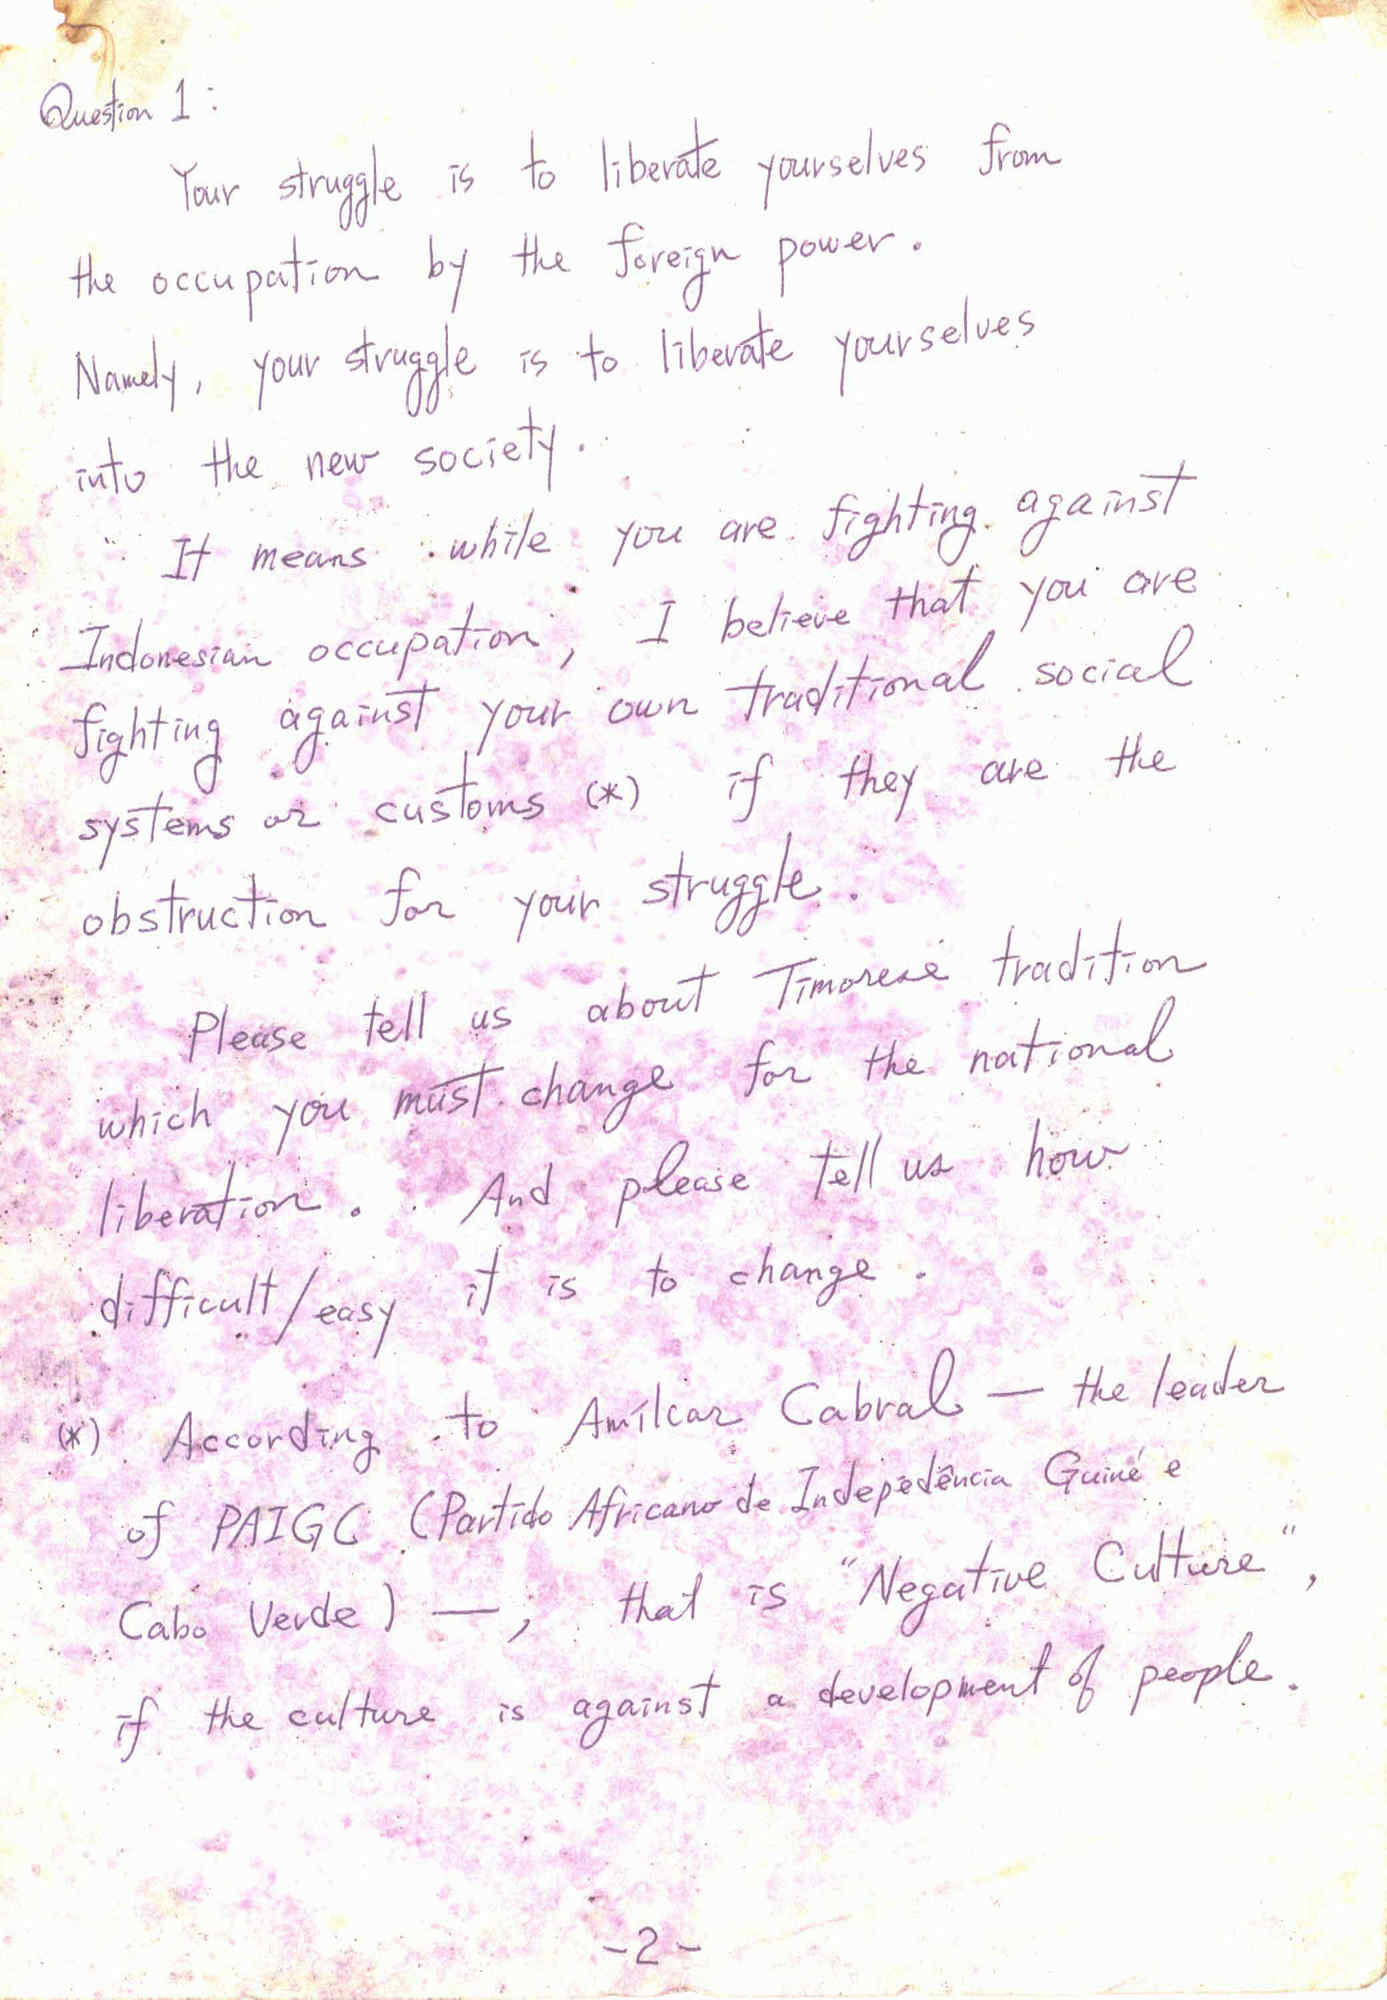 Question 1:
Your struggle is to liberate yourselves from
the occupation by the foreign power.
Namely, your struggle is to liberate yourselves
into the new society.
It means while you are fighting against
Indonesian occupation, I believe that you are
fighting against your own traditional social
systems or customs (*) if they are the
obstruction for your struggle.
Please tell us about Timorese tradition
which you must change for the national
liberation. And please tell us how
difficult/easy it is to change.
(*) According to Amílcar Cabral — the leader
of PAIGC (Partido Africano de Indepedência Guiné e
Cabo Verde) —, that is "Negative Culture",
if the culture is against a development of people.
-2-